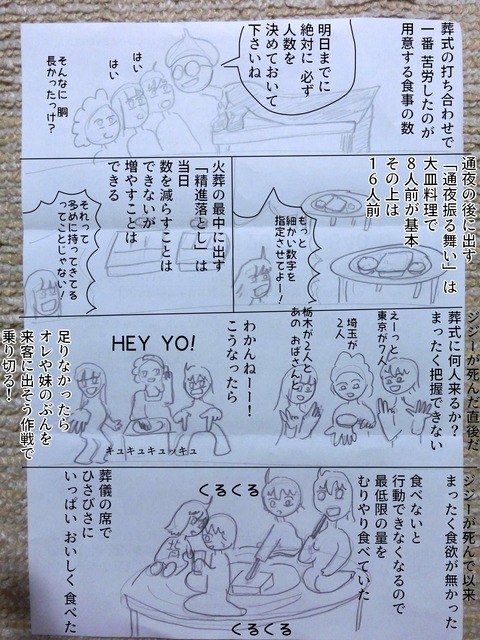 葬式の打ち合わせで
一番 苦労したのが
用意する食事の数
明日までに
絶対に 必ず
人数を
決めておいて
下さいね
はい
はい
そんなに 胴
長かったっけ？
通夜の後に出す
「通夜振る舞い」は
大皿料理で
８人前が基本
その上は
１６人前
もっと
細かい数字を
指定させてよー！
火葬の最中に出す
「精進落とし」は
当日
数を減らすことは
できないが
増やすことは
できる
それって
多めに持ってきてる
ってことじゃない！
ジジーが死んだ直後だ
葬式に何人来るか？
まったく把握できない
えーっと
東京が７人
埼玉が
２人
栃木が２人と
あの おばさんと
わかんねーー！
こうなったら
HEY YO!
キュキュキュッキュ
足りなかったら
オレや妹のぶんを
来客に出そう作戦で
乗り切る！
ジジーが死んで以来
まったく食欲が無かった
食べないと
行動できなくなるので
最低限の量を
むりやり食べていた
くるくる
くるくる
葬儀の席で
ひさびさに
いっぱい おいしく 食べた